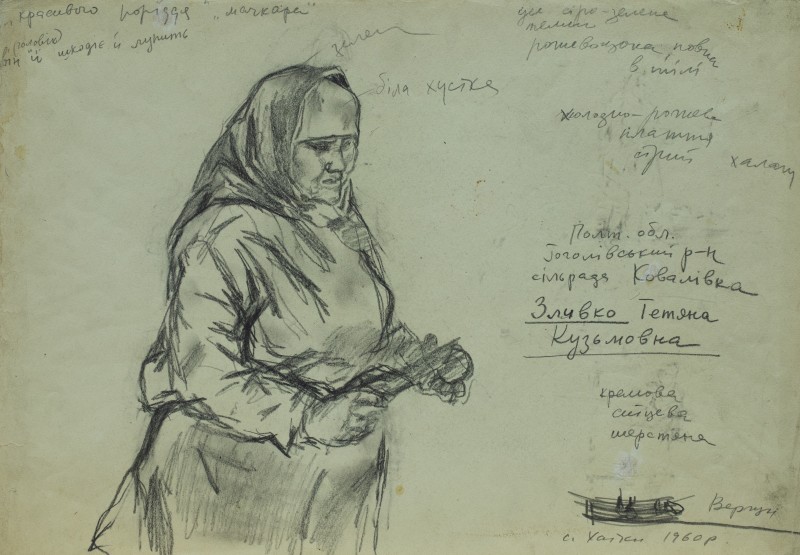 красивого порiддя "мачкара"
(чоловік)
він її шкодує й мунить
зелен
біла хустка
це сіро-зелене
рожевощока, повна
в тілі
холодно-рожева
плаття
сірий халат
Полт. обл.
Гоголівський р-н
сільрада Ковалівка
Зливко Тетяна
Кузьмовна
кремова
ситцева
шерстяна
с. 1960 р.